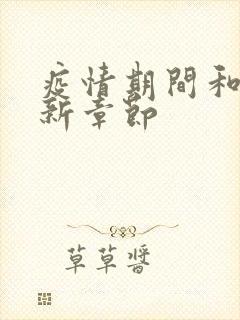 疫情期間和
新章節
草草醬